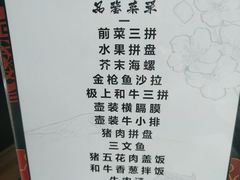 品鉴菜单
一
前菜三拼
水果拼盘
芥末海螺
金枪鱼沙拉
极上和牛三拼
壶装横膈膜
壶装牛小排
猪肉拼盘
三文鱼
猪五花肉盖饭
和牛香葱拌饭